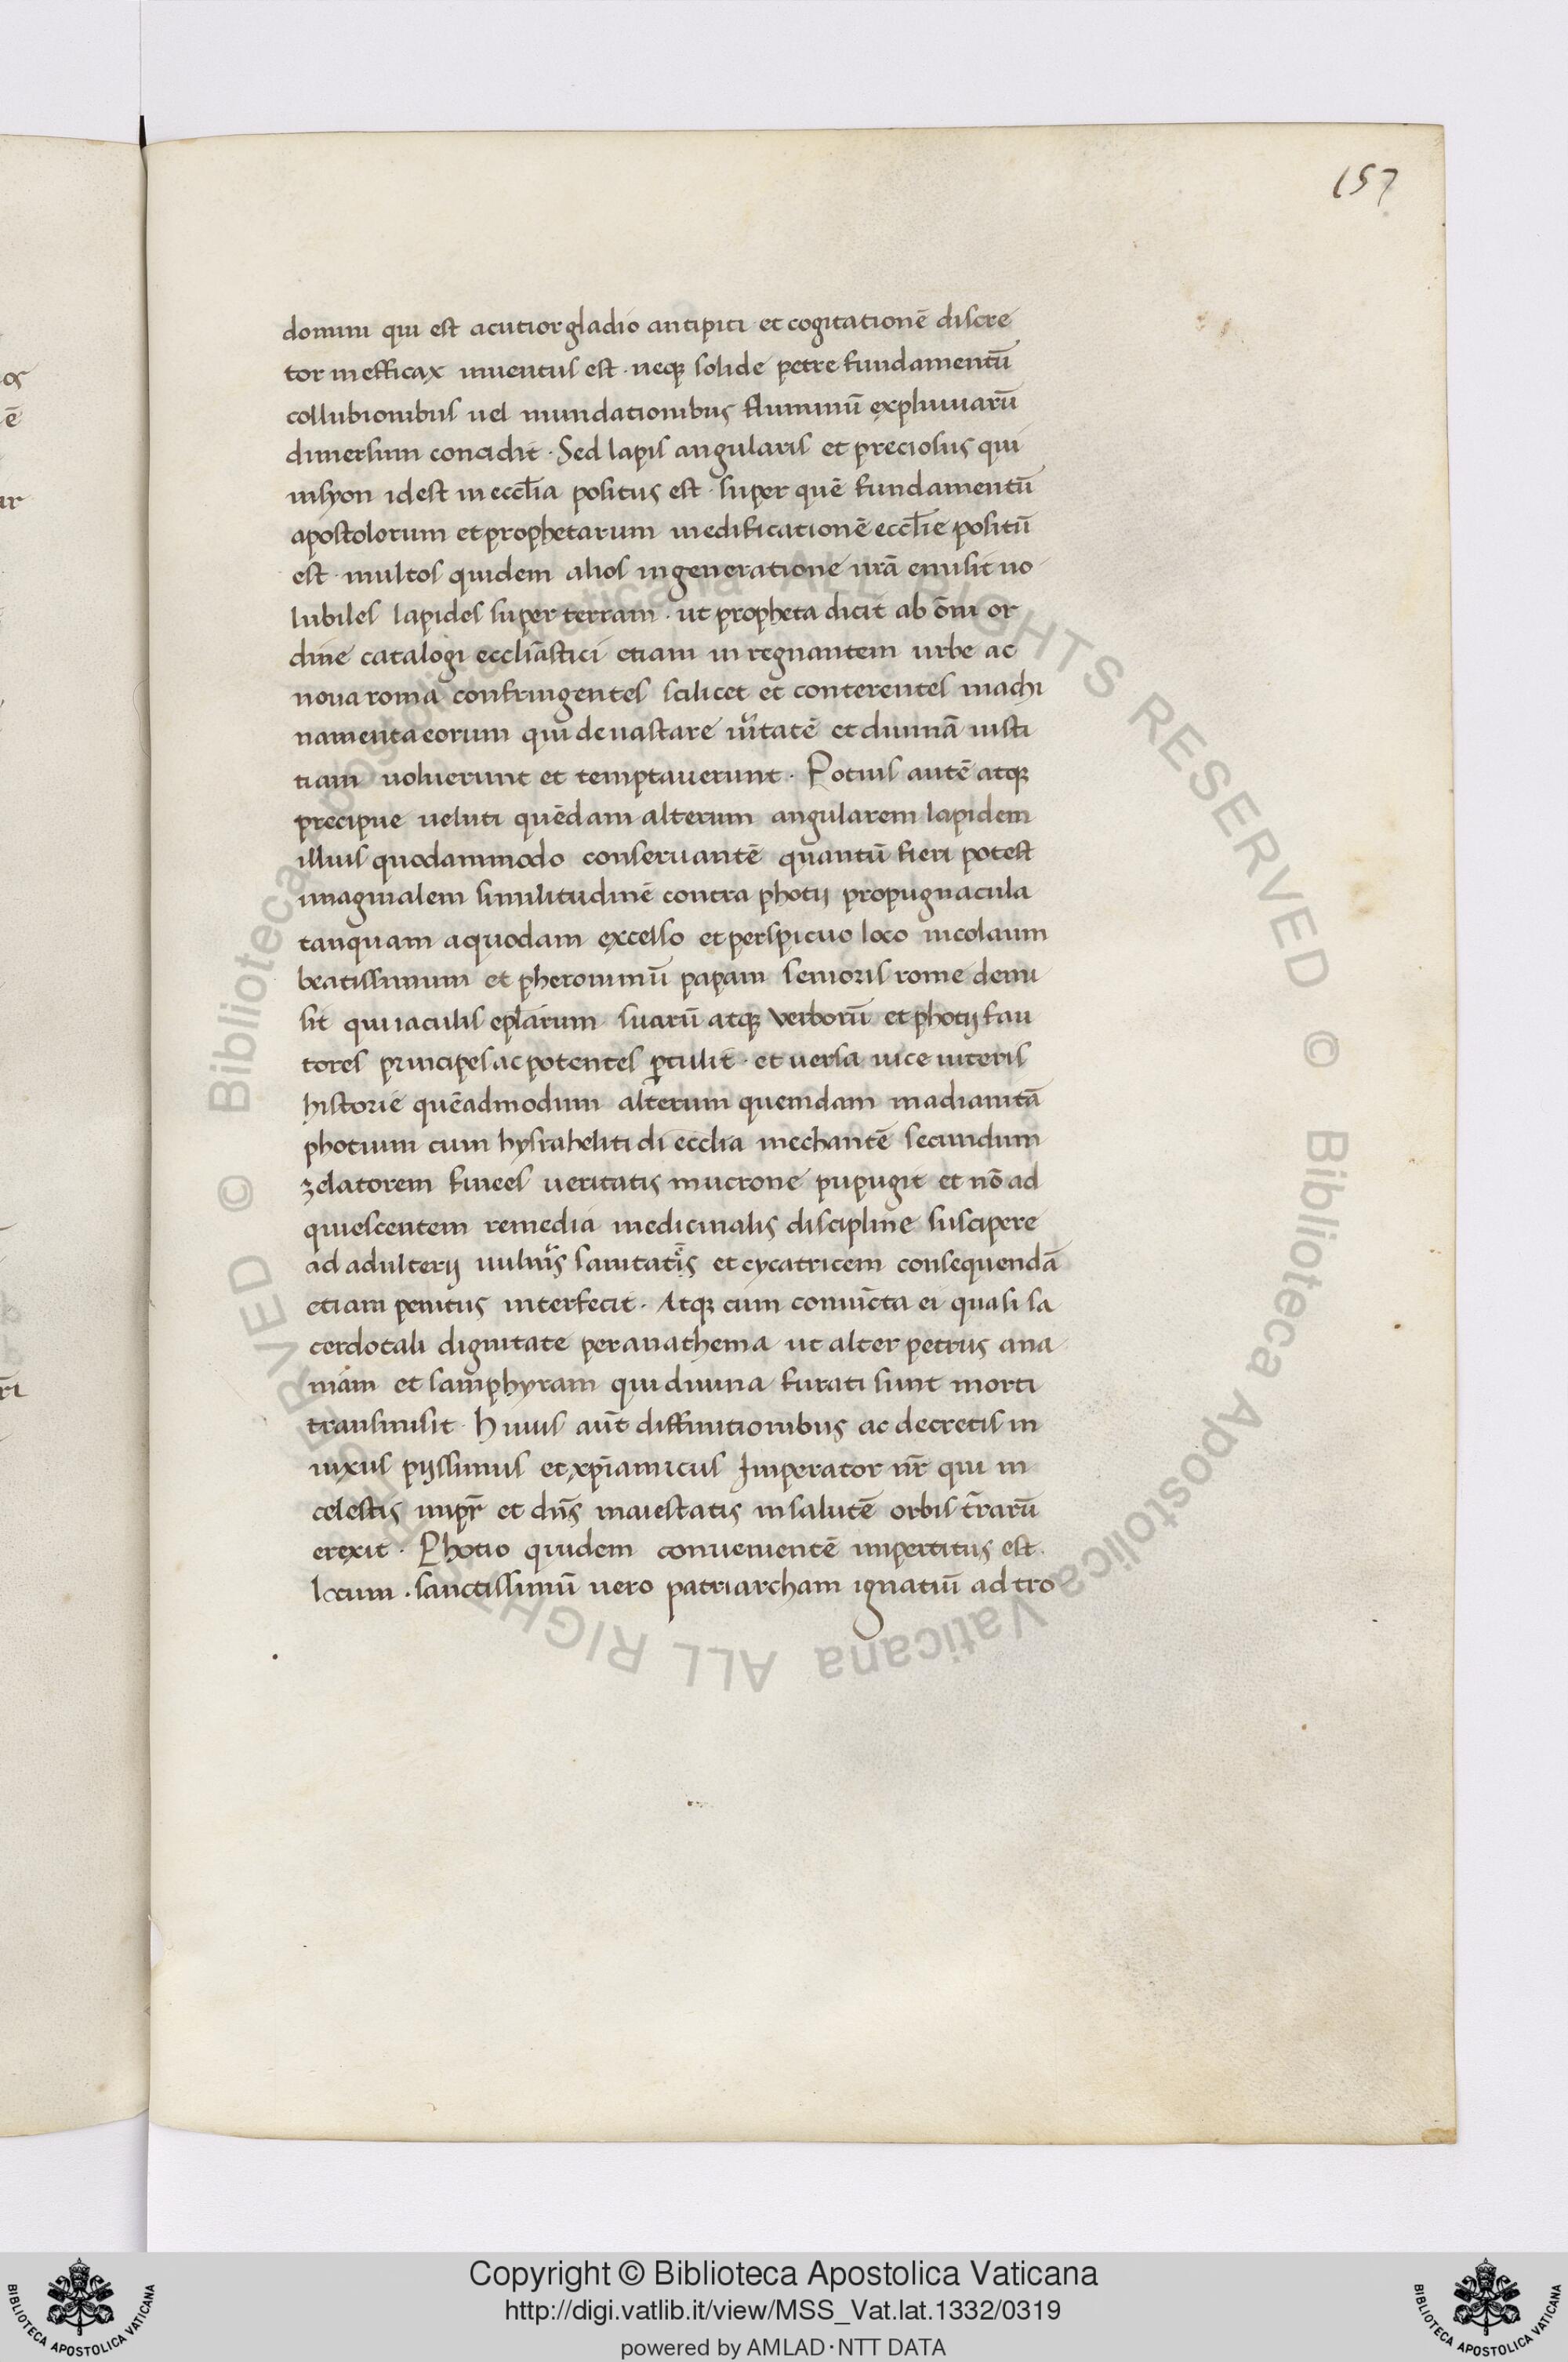 157
domini qui est acutior gladio ancipiti et cogitationē discre
tor inefficax inuentus est . neqꝫ solide petre fundamentū
collubionibus uel inundationibus fluminū expluuiarū
dimersum concidit . Sed lapis angularis et preciosus qui
insyon idest in eccl̄ia positus est . super quē fundamentū
apostolorum et prophetarum inedificationē eccl̄ie positū
est . multos quidem alios ingeneratione nrā emisit uo
lubiles lapides super terram . ut propheta dicit ab ōni or
dine catalogi eccliāstici etiam in regnantem urbe ac
noua roma confringentes scilicet et conterentes machi
namenta eorum qui deuastare ũitatē et diuinā iusti
tiam uoluerunt et temptauerunt . Potius autē atqꝫ
precipue ueluti quēdam alterum angularem lapidem
illius quodammodo conseruantē quantū fieri potest
imaginalem similitudinē contra photij propugnacula
tanquam aquodam excelso et perspicuo loco nicolaum
beatissimum et pheronimū papam senioris rome demi
sit qui iaculis eplārum suarū atqꝫ verborū et photij fau
tores principes ac potentes ꝑculit . et uersa uice ueteris
historie quēadmodum alterum quemdam madianitā
photium cum hysraheliti di ecclīa mechantē secundum
zelatorem finees ueritatis mucrone pupugit et nō ad
quiescentem remedia medicinalis discipline suscipere
ad adulterij uulnr̄is sanitatis et cycatricem consequendā
etiam penitus interfecit . Atqꝫ cum conuicta ei quasi sa
cerdotali dignitate per anathema ut alter petrus ana
niam et samphyram qui diuina furati sunt morti
transmisit . Huius aut̄ diffinitionibus ac decretis in
nixus pijssimus et xp̄iamicus Imperator nr̄ qui in
celestis impr̄ et dn̄s maiestatis insalutē orbis t̄rarū
erexit . Photio quidem conuenientē impertitus est
locum . sanctissimū uero patriarcham ignatiū ad tro
© Biblioteca Apostolica Vaticana ALL RIGHTS RESERVED © Biblioteca Apostolica Vaticana ALL RIGHTS RESERVED
Copyright © Biblioteca Apostolica Vaticana
http://digi.vatlib.it/view/MSS_Vat.lat.1332/0319
powered by AMLAD·NTT DATA
BIBLIOTECA APOSTOLICA VATICANA
BIBLIOTECA APOSTOLICA VATICANA